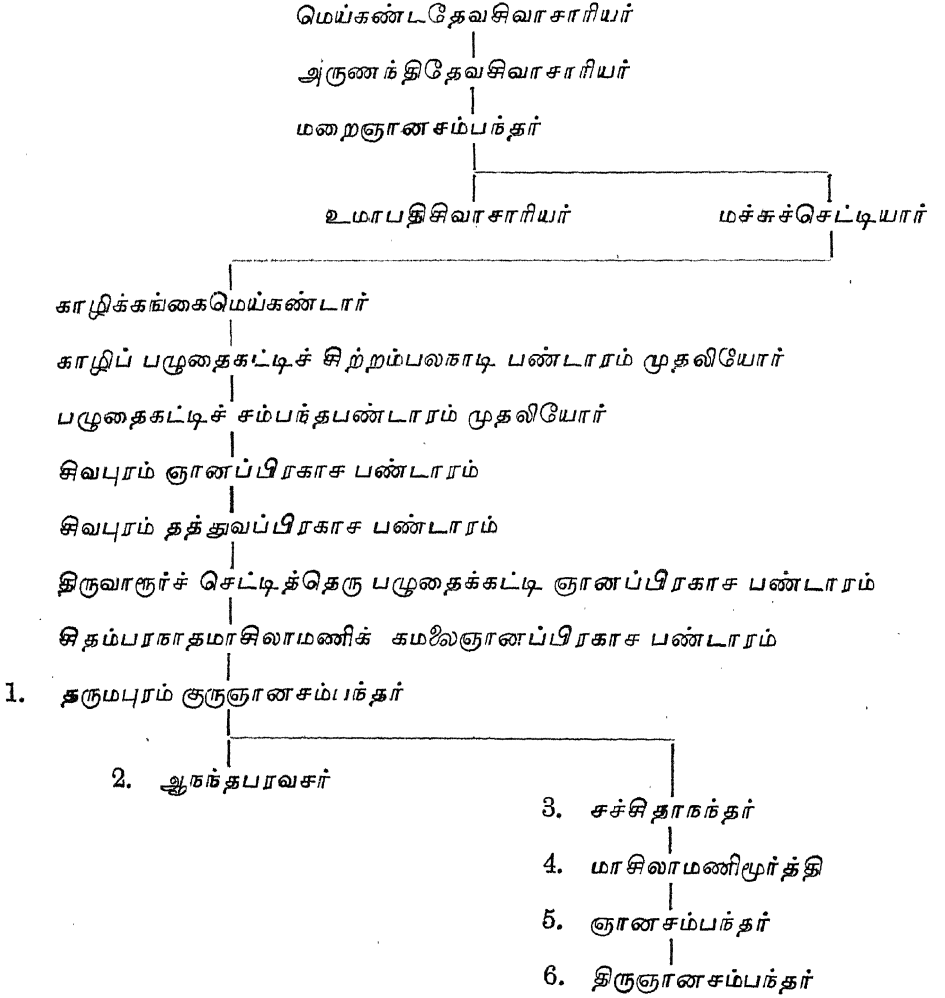 மெய்கண்டதேவசிவாசாரியர்
அருணந்திதேவசிவாசாரியர்
மறைஞானசம்பந்தர்
உமாபதிசிவாசாரியர் மச்சுச்செட்டியார்
காழிக்கங்கைமெய்கண்டார்
காழிப் பழுதைகட்டிச் சிற்றம்பலநாடி பண்டாரம் முதலியோர்
பழுதைகட்டிச் சம்பந்தபண்டாரம் முதலியோர்
சிவபுரம் ஞானப்பிரகாச பண்டாரம்
சிவபுரம் தத்துவப்பிரகாச பண்டாரம்
திருவாரூர்ச் செட்டித்தெரு பழுதைக்கட்டி ஞானப்பிரகாச பண்டாரம்
சிதம்பரநாதமாசிலாமணிக் கமலைஞானப்பிரகாச பண்டாரம்
1. தருமபுரம் குருஞானசம்பந்தர்
2. ஆநந்தபரவசர்
3. சச்சிதாநந்தர்
4. மாசிலாமணிமூர்த்தி
5. ஞானசம்பந்தர்
6. திருஞானசம்பந்தர்